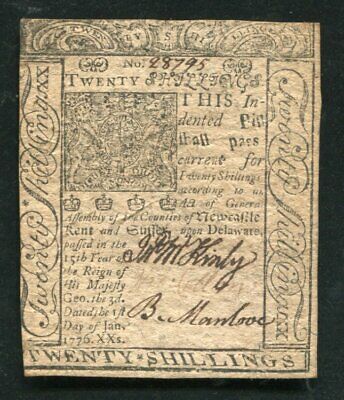 TWENTY SHILLINGS
No. 28795
TWENTY SHILLINGS
THIS In-
dented Bill
shall pass
current for
Twenty Shillings
according to an
Act of General
Assembly of the Counties of Newcastle
Kent and Sussex upon Delaware,
passed in the
15th Year of
the Reign of
His Majesty
Geo. the 3d.
Dated the 1st
Day of Jan.
1776. XXs.
B. Manlove
Twenty Shillings XX
Twenty Shillings XX
TWENTY SHILLINGS